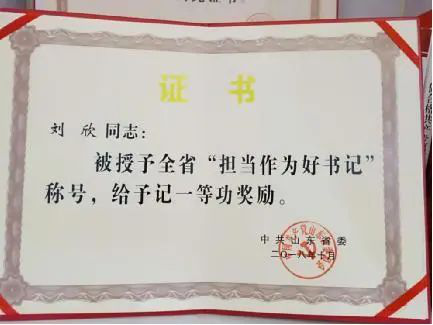 证书
刘欣同志：
被授予全省“担当作为好书记”
称号，给予记一等功奖励。
中共山东省委
二〇一八年十月